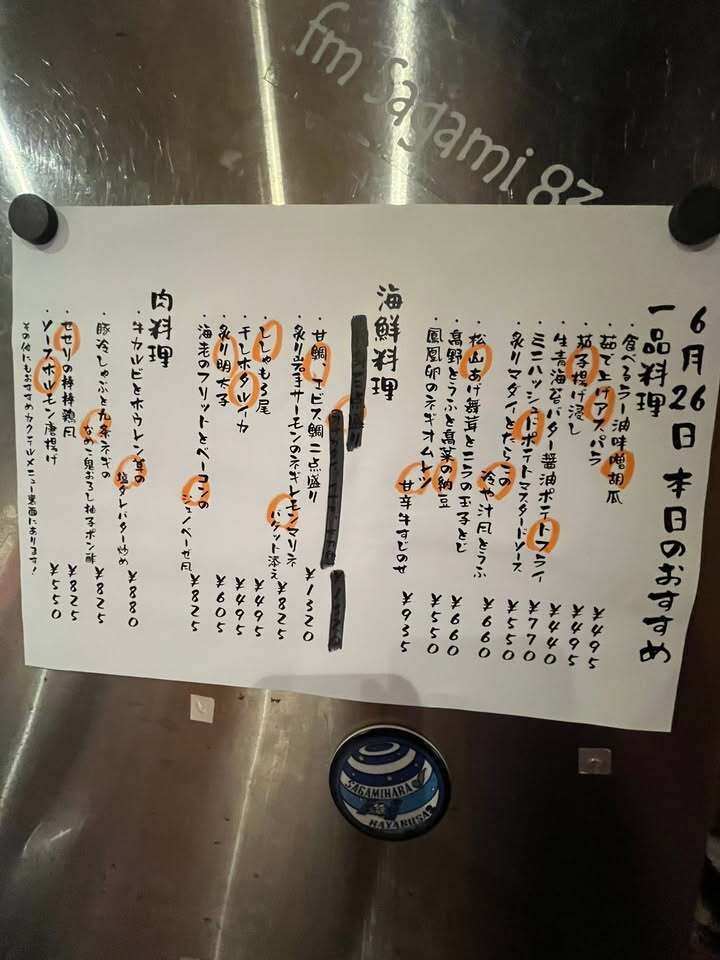 fm Sagami 83
6月26日 本日のおすすめ
一品料理
・食べるラー油味噌胡瓜 ¥495
・茹で上げアスパラ ¥495
・茄子揚げ浸し ¥440
・生青海苔バター醤油ポテトフライ ¥770
・ミニハッシュドポテトマスタードソース ¥550
・炙りマダイとたらこの冷や汁風とうふ ¥660
・松山あげ舞茸とニラの玉子とじ ¥660
・高野とうふと高菜の納豆 ¥550
・鳳凰卵のネギオムレツ 甘辛牛すじのせ ¥935
海鮮料理
・甘鯛、エビス鯛二点盛り ¥1320
・炙り岩手サーモンのネギレモンマリネ バゲット添え ¥825
・ししゃも3尾 ¥495
・干しホタルイカ ¥495
・炙り明太子 ¥605
・海老のフリットとベーコンのジェノベーゼ風 ¥825
肉料理
・牛カルビとホウレン草の塩ダレバター炒め ¥880
・豚冷しゃぶと九条ネギの なめこ鬼おろし柚子ポン酢 ¥825
・せせりの棒棒鶏風 ¥825
・ソースホルモン唐揚げ ¥550
その他にもおすすめカクテルメニュー裏面にあります!
SAGAMIHARA
HAYABUSA2